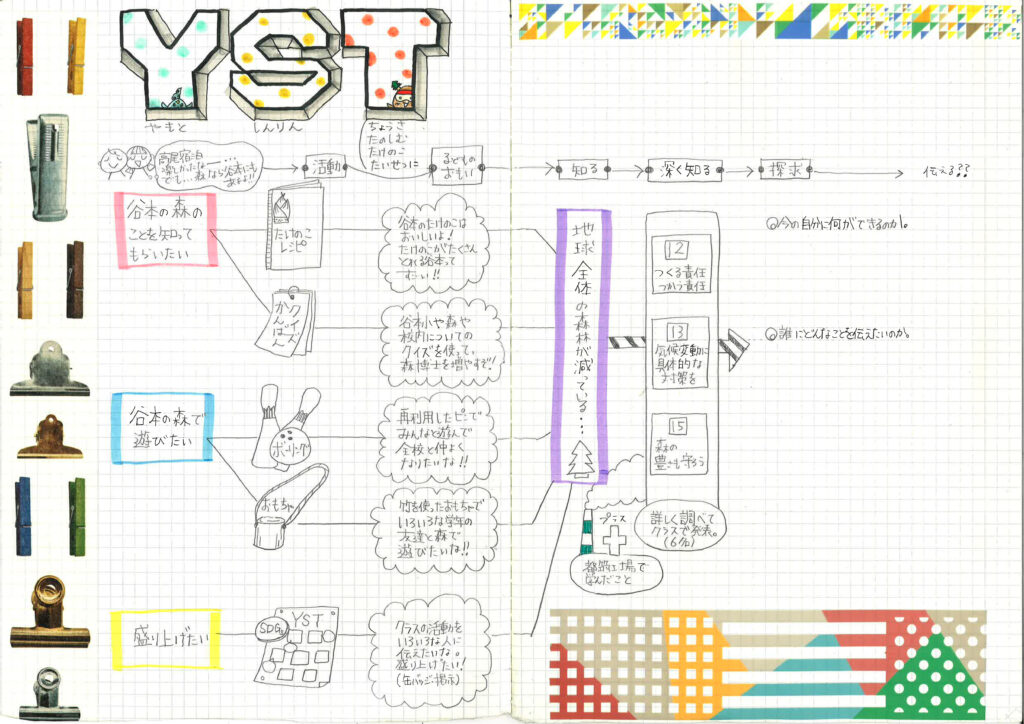 YST
やもと
しんりん
ちょうさ
たのしむ
たけのこ
たいせつに
高尾宿泊
楽しかったなー…
でも…森なら谷本にも
あるよ!!
活動
子どもの
おもい
知る
深く知る
探求
伝える??
谷本の森の
ことを知って
もらいたい
たけのこ
レシピ
谷本のたけのこは
おいしいよ!
たけのこがたくさん
とれる谷本って
すごい!!
クイズ
かんばん
谷本小や森や
校内についての
クイズを使って、
森博士を増やすぞ!
谷本の森で
遊びたい
ボーリング
再利用したピンで
みんなと遊んで
全校と仲よく
なりたいな!!
おもちゃ
竹を使ったおもちゃで
いろいろな学年の
友達と森で
遊びたいな!!
盛り上げたい
SDGs
YST
クラスの活動を
いろいろな人に
伝えたいな。
盛り上げたい!
(缶バッジ・掲示)
地球全体の森林が減っている…
12
つくる責任
つかう責任
13
気候変動に
具体的な
対策を
15
森の
豊さも守ろう
詳しく調べて
クラスで発表。
プラス
都筑工場で
学んだこと
今の自分に何ができるのか。
誰にどんなことを伝えたいのか。